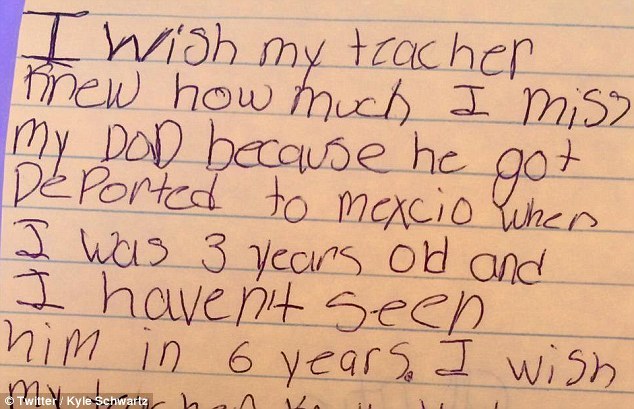 I wish my teacher
knew how much I miss
my DaD because he got
DePorted to mexcio when
I was 3 years old and
I haven't seen
him in 6 years. I wish
my teacher knew
© Twitter / Kyle Schwartz